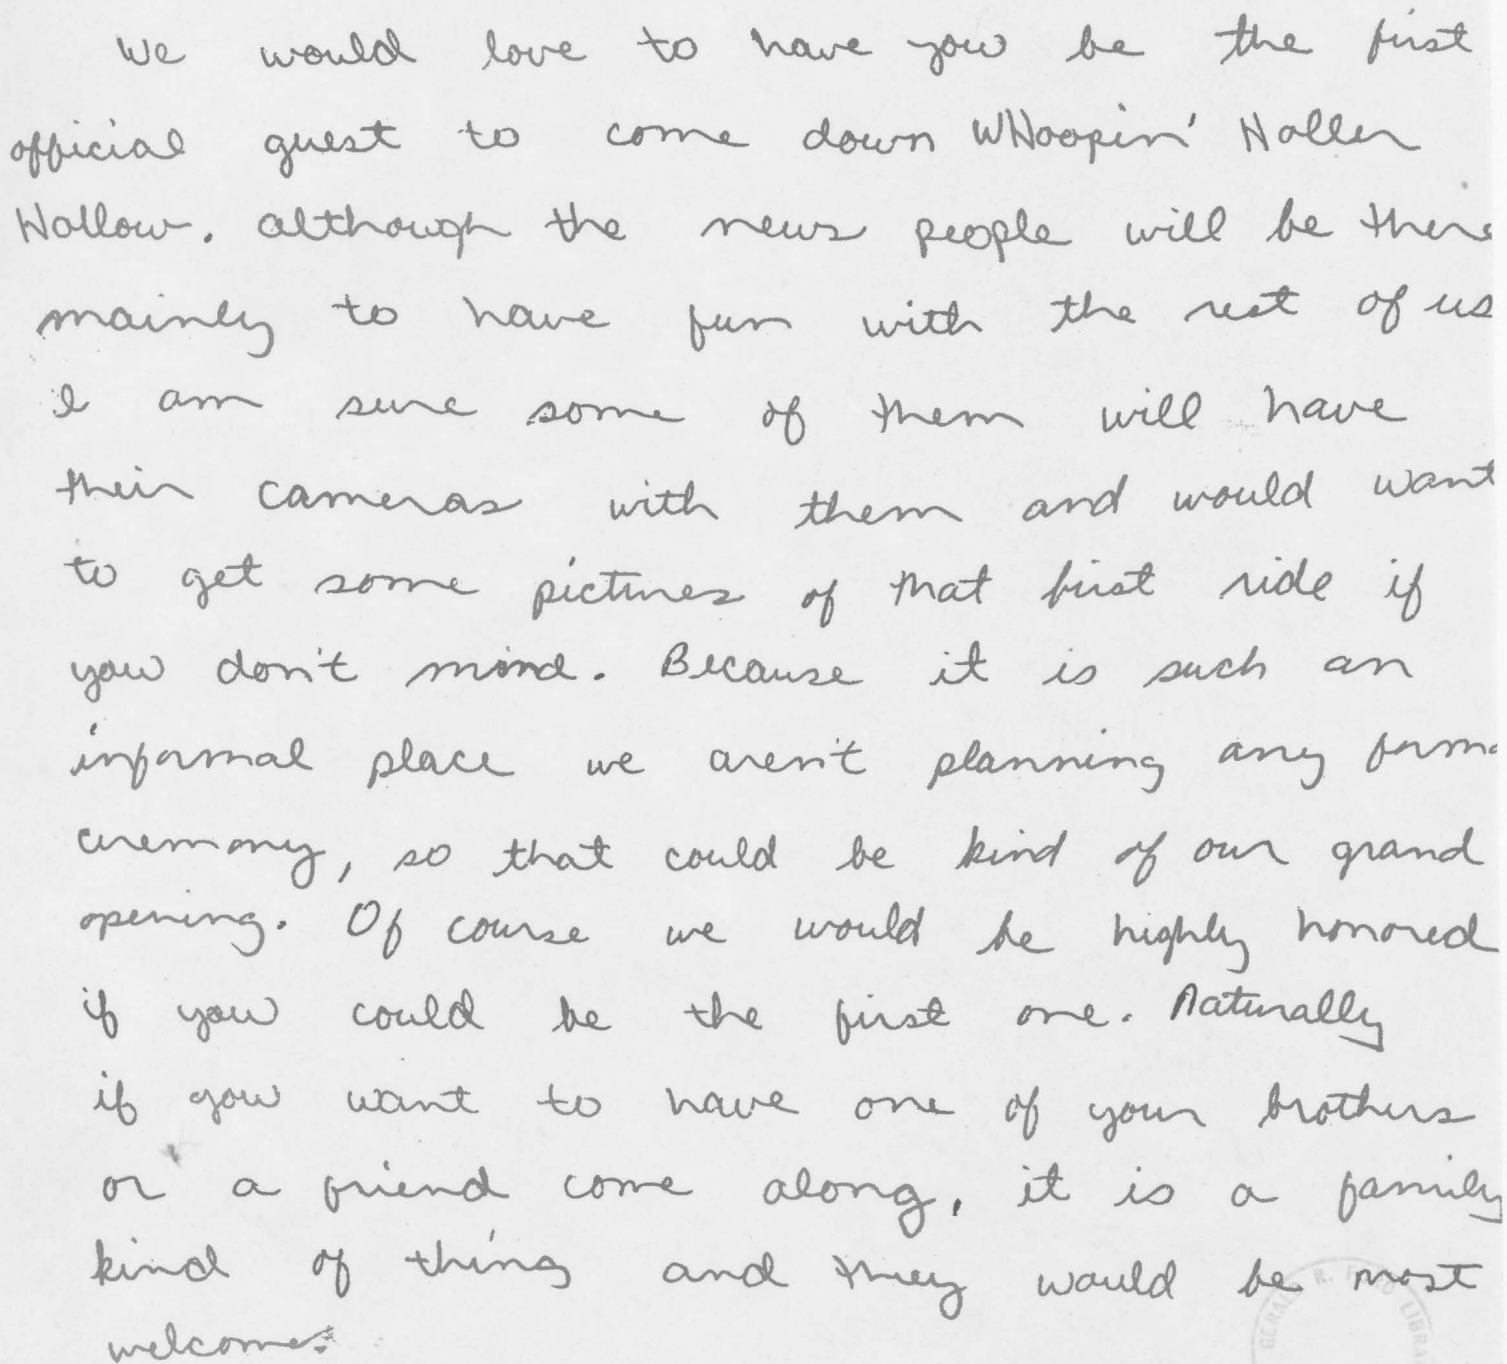 We would love to have you be the first
official guest to come down WHoopin' Holler
Hollow. Although the news people will be there
mainly to have fun with the rest of us
I am sure some of them will have
their cameras with them and would want
to get some pictures of that first ride if
you don't mind. Because it is such an
informal place we aren't planning any forma
ceremony, so that could be kind of our grand
opening. Of course we would be highly honored
if you could be the first one. Naturally
if you want to have one of your brothers
or a friend come along, it is a family
kind of thing and they would be most
welcome.
GERALD R. FORD LIBRA